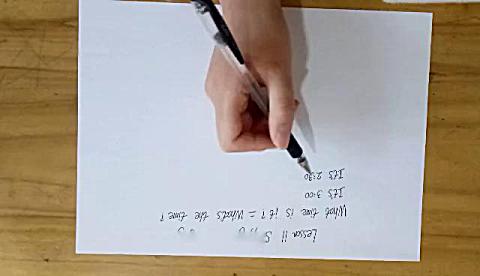 Lesson 11
What time is it? = What's the time?
It's 3:00
It's 2:30